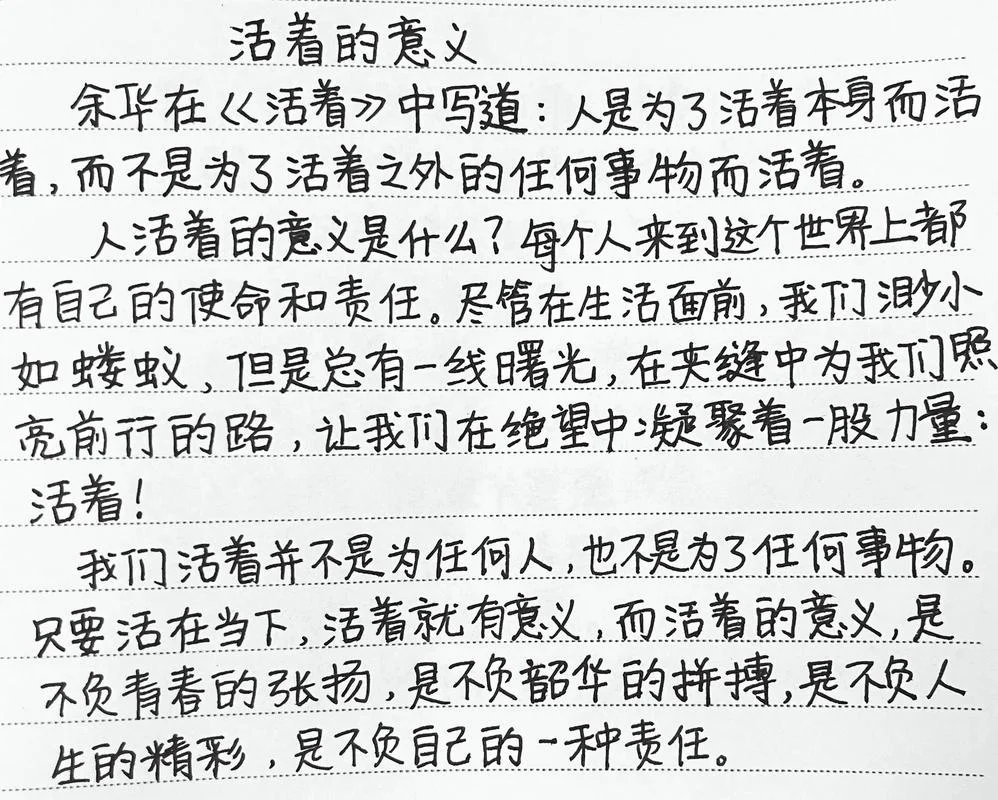 活着的意义
余华在《活着》中写道：人是为了活着本身而活
着，而不是为了活着之外的任何事物而活着。
人活着的意义是什么？每个人来到这个世界上都
有自己的使命和责任。尽管在生活面前，我们渺小
如蝼蚁，但是总有一线曙光，在夹缝中为我们照
亮前行的路，让我们在绝望中凝聚着一股力量：
活着！
我们活着并不是为任何人，也不是为了任何事物。
只要活在当下，活着就有意义，而活着的意义，是
不负青春的张扬，是不负韶华的拼搏，是不负人
生的精彩，是不负自己的一种责任。